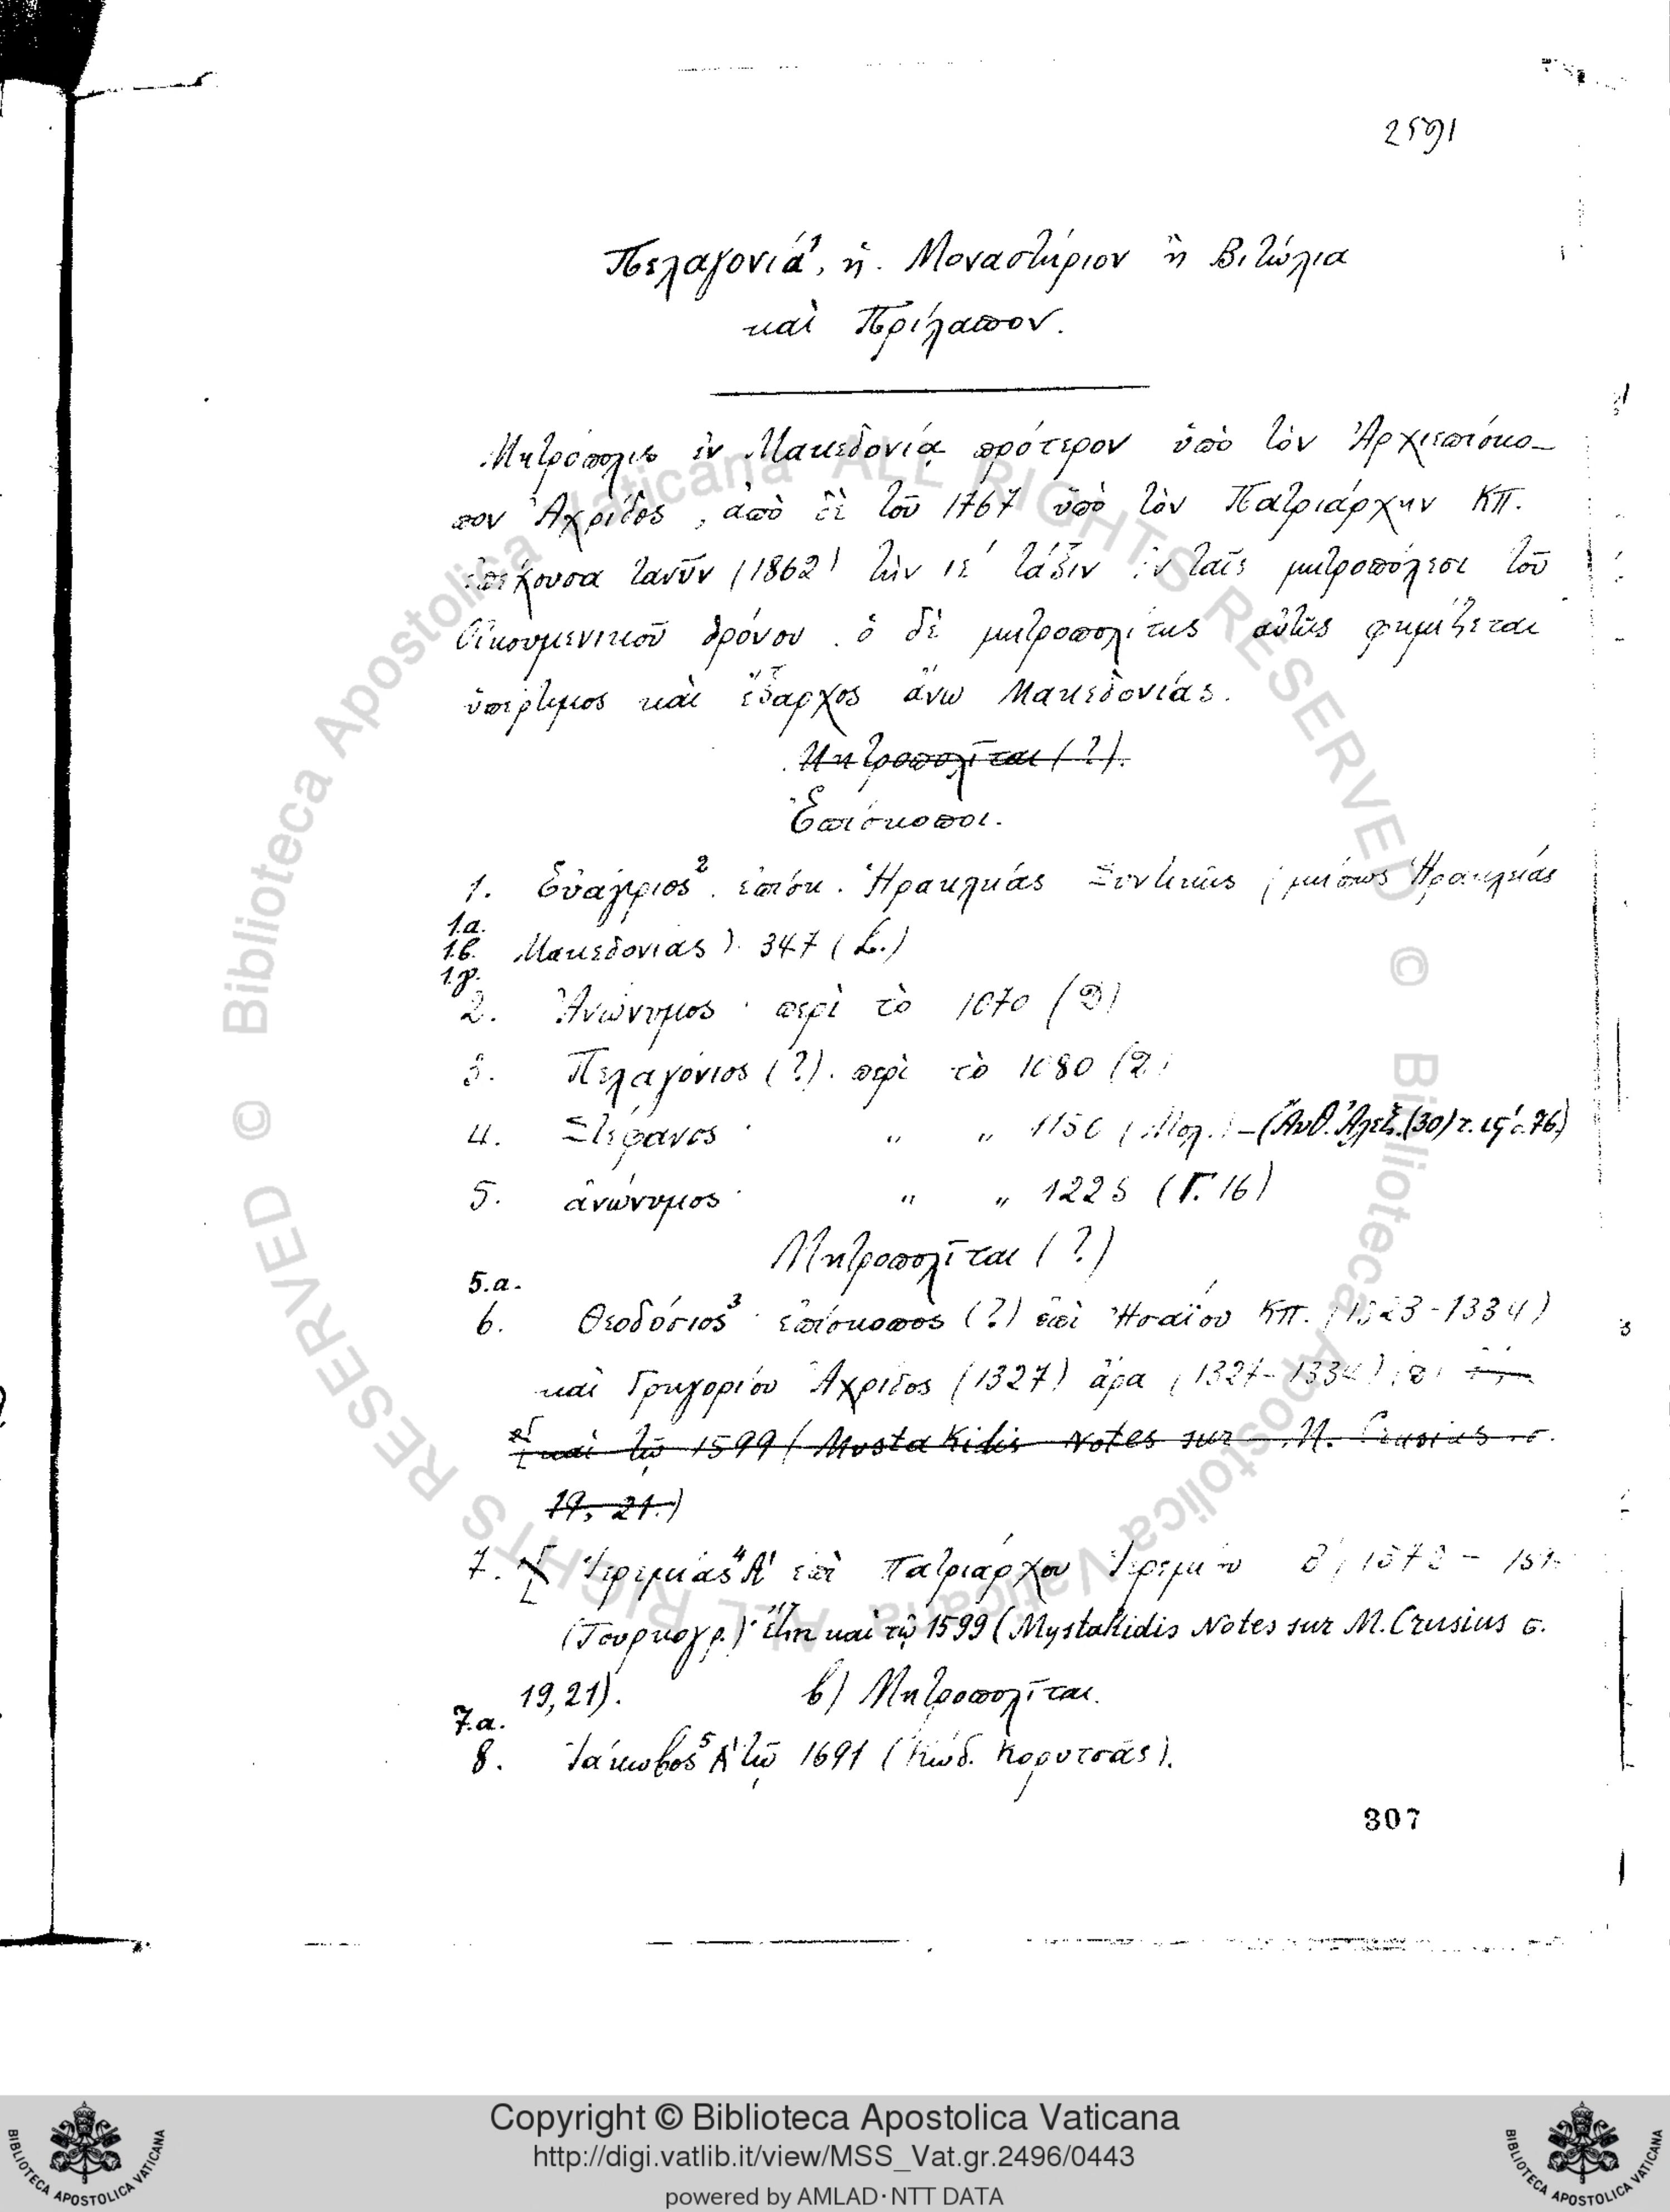 2591
Πελαγονία¹, ἡ. Μοναστήριον ἢ Βιτώλια
καὶ Πρίλαπον.
Μητρόπολις ἐν Μακεδονίᾳ πρότερον ὑπὸ τὸν Ἀρχιεπίσκο-
πον Ἀχρίδος, ἀπὸ δὲ τοῦ 1767 ὑπὸ τὸν Πατριάρχην ΚΠ.
ἐπέχουσα τανῦν (1862) τὴν ιε´ τάξιν ἐν ταῖς μητροπόλεσι τοῦ
Οἰκουμενικοῦ θρόνου. ὁ δὲ μητροπολίτης αὐτῆς φημίζεται
ὑπέρτιμος καὶ ἔξαρχος ἄνω Μακεδονίας.
Μητροπολῖται (?).
Ἐπίσκοποι.
1. Εὐάγριος². ἐπίσκ. Ἡρακλείας Σιντικῆς (μήπως Ἡρακλείας
1.α.
1.β. Μακεδονίας). 347 (L.)
1.γ.
2. Ἀνώνυμος· περὶ τὸ 1070 (D)
3. Πελαγόνιος (?). περὶ τὸ 1080 (2)
4. Στέφανος· " " 1150 (Μολ.) - (Ἀνθ. Ἀλεξ. (30) τ. ιγ´ σ. 76)
5. ἀνώνυμος· " " 1225 (Γ. 16)
Μητροπολῖται (?)
5.α.
6. Θεοδόσιος³· ἐπίσκοπος (?) ἐπὶ Ἡσαΐου ΚΠ. (1323-1334)
καὶ Γρηγορίου Ἀχρίδος (1327) ἄρα (1327-1334)
καὶ τῷ 1599 (Mystakidis Notes sur M. Crusius σ.
19, 21.)
7. Ἱερεμίας⁴ Α´ ἐπὶ Πατριάρχου Ἱερεμίου β´, 1572 -
(Τουρκογρ.)· ἔτι καὶ τῷ 1599 (Mystakidis Notes sur M. Crusius σ.
19, 21). β) Μητροπολῖται.
7.α.
8. Ἰάκωβος⁵ Α´ τῷ 1691 (Κώδ. Κορυτσᾶς).
307
© Biblioteca Apostolica Vaticana ALL RIGHTS RESERVED © Biblioteca Apostolica Vaticana ALL RIGHTS RESERVED
Copyright © Biblioteca Apostolica Vaticana
http://digi.vatlib.it/view/MSS_Vat.gr.2496/0443
powered by AMLAD·NTT DATA
BIBLIOTECA APOSTOLICA VATICANA
BIBLIOTECA APOSTOLICA VATICANA